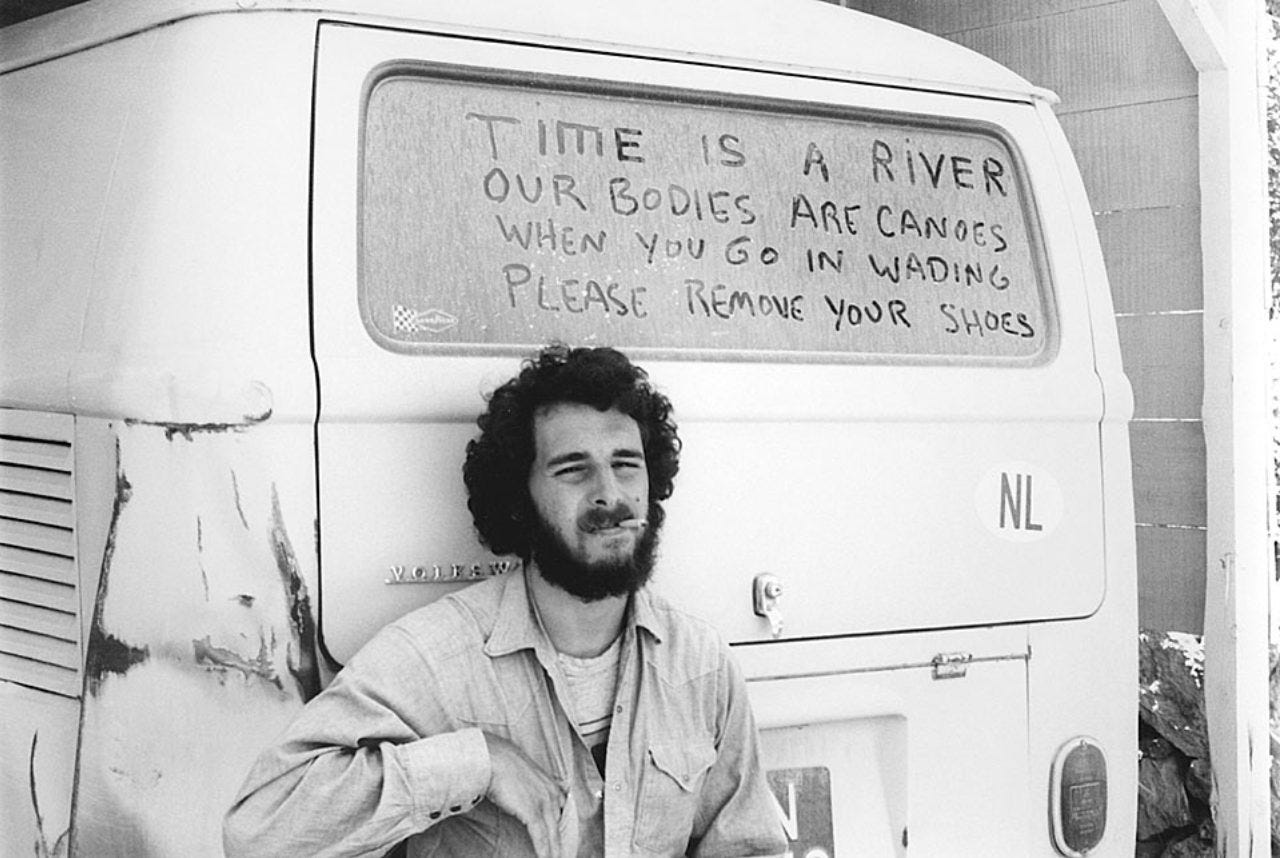 TIME IS A RIVER
OUR BODIES ARE CANOES
WHEN YOU GO IN WADING
PLEASE REMOVE YOUR SHOES
NL
VOLKSW
N